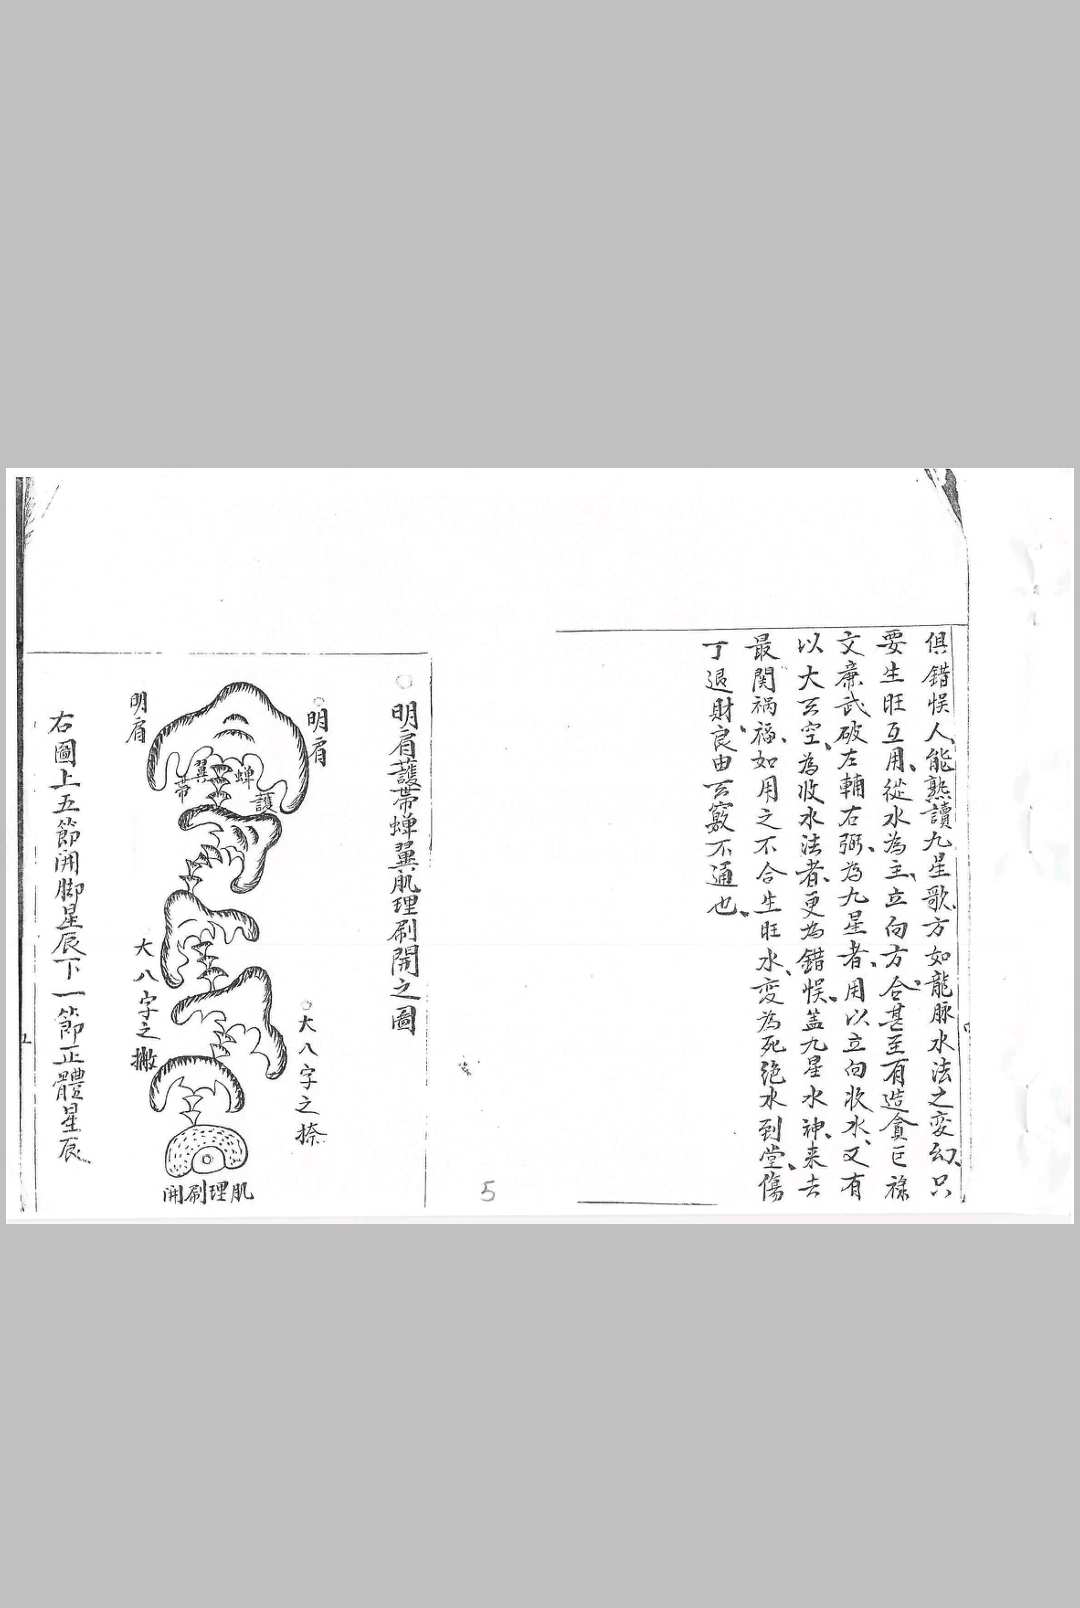 俱錯悮人、能熟讀九星歌、方如龍脉水法之変幻、只
要生旺互用、從水為主、立向方合、甚至有造貪巨祿
文亷武破左輔右弼、為九星者、用以立向收水、又有
以大玄空、為收水法者、更為錯悮、盖九星水神、来去
最関禍福、如用之不合生旺水、変為死絶水到堂、傷
丁退財、良由玄竅不通也、
○明肩護帶蝉翼肌理刷開之圖
○明肩
明肩
蝉翼
護帶
○大八字之捺
大八字之撇
肌理刷開
右圖上五節開脚星辰下一節正體星辰
5